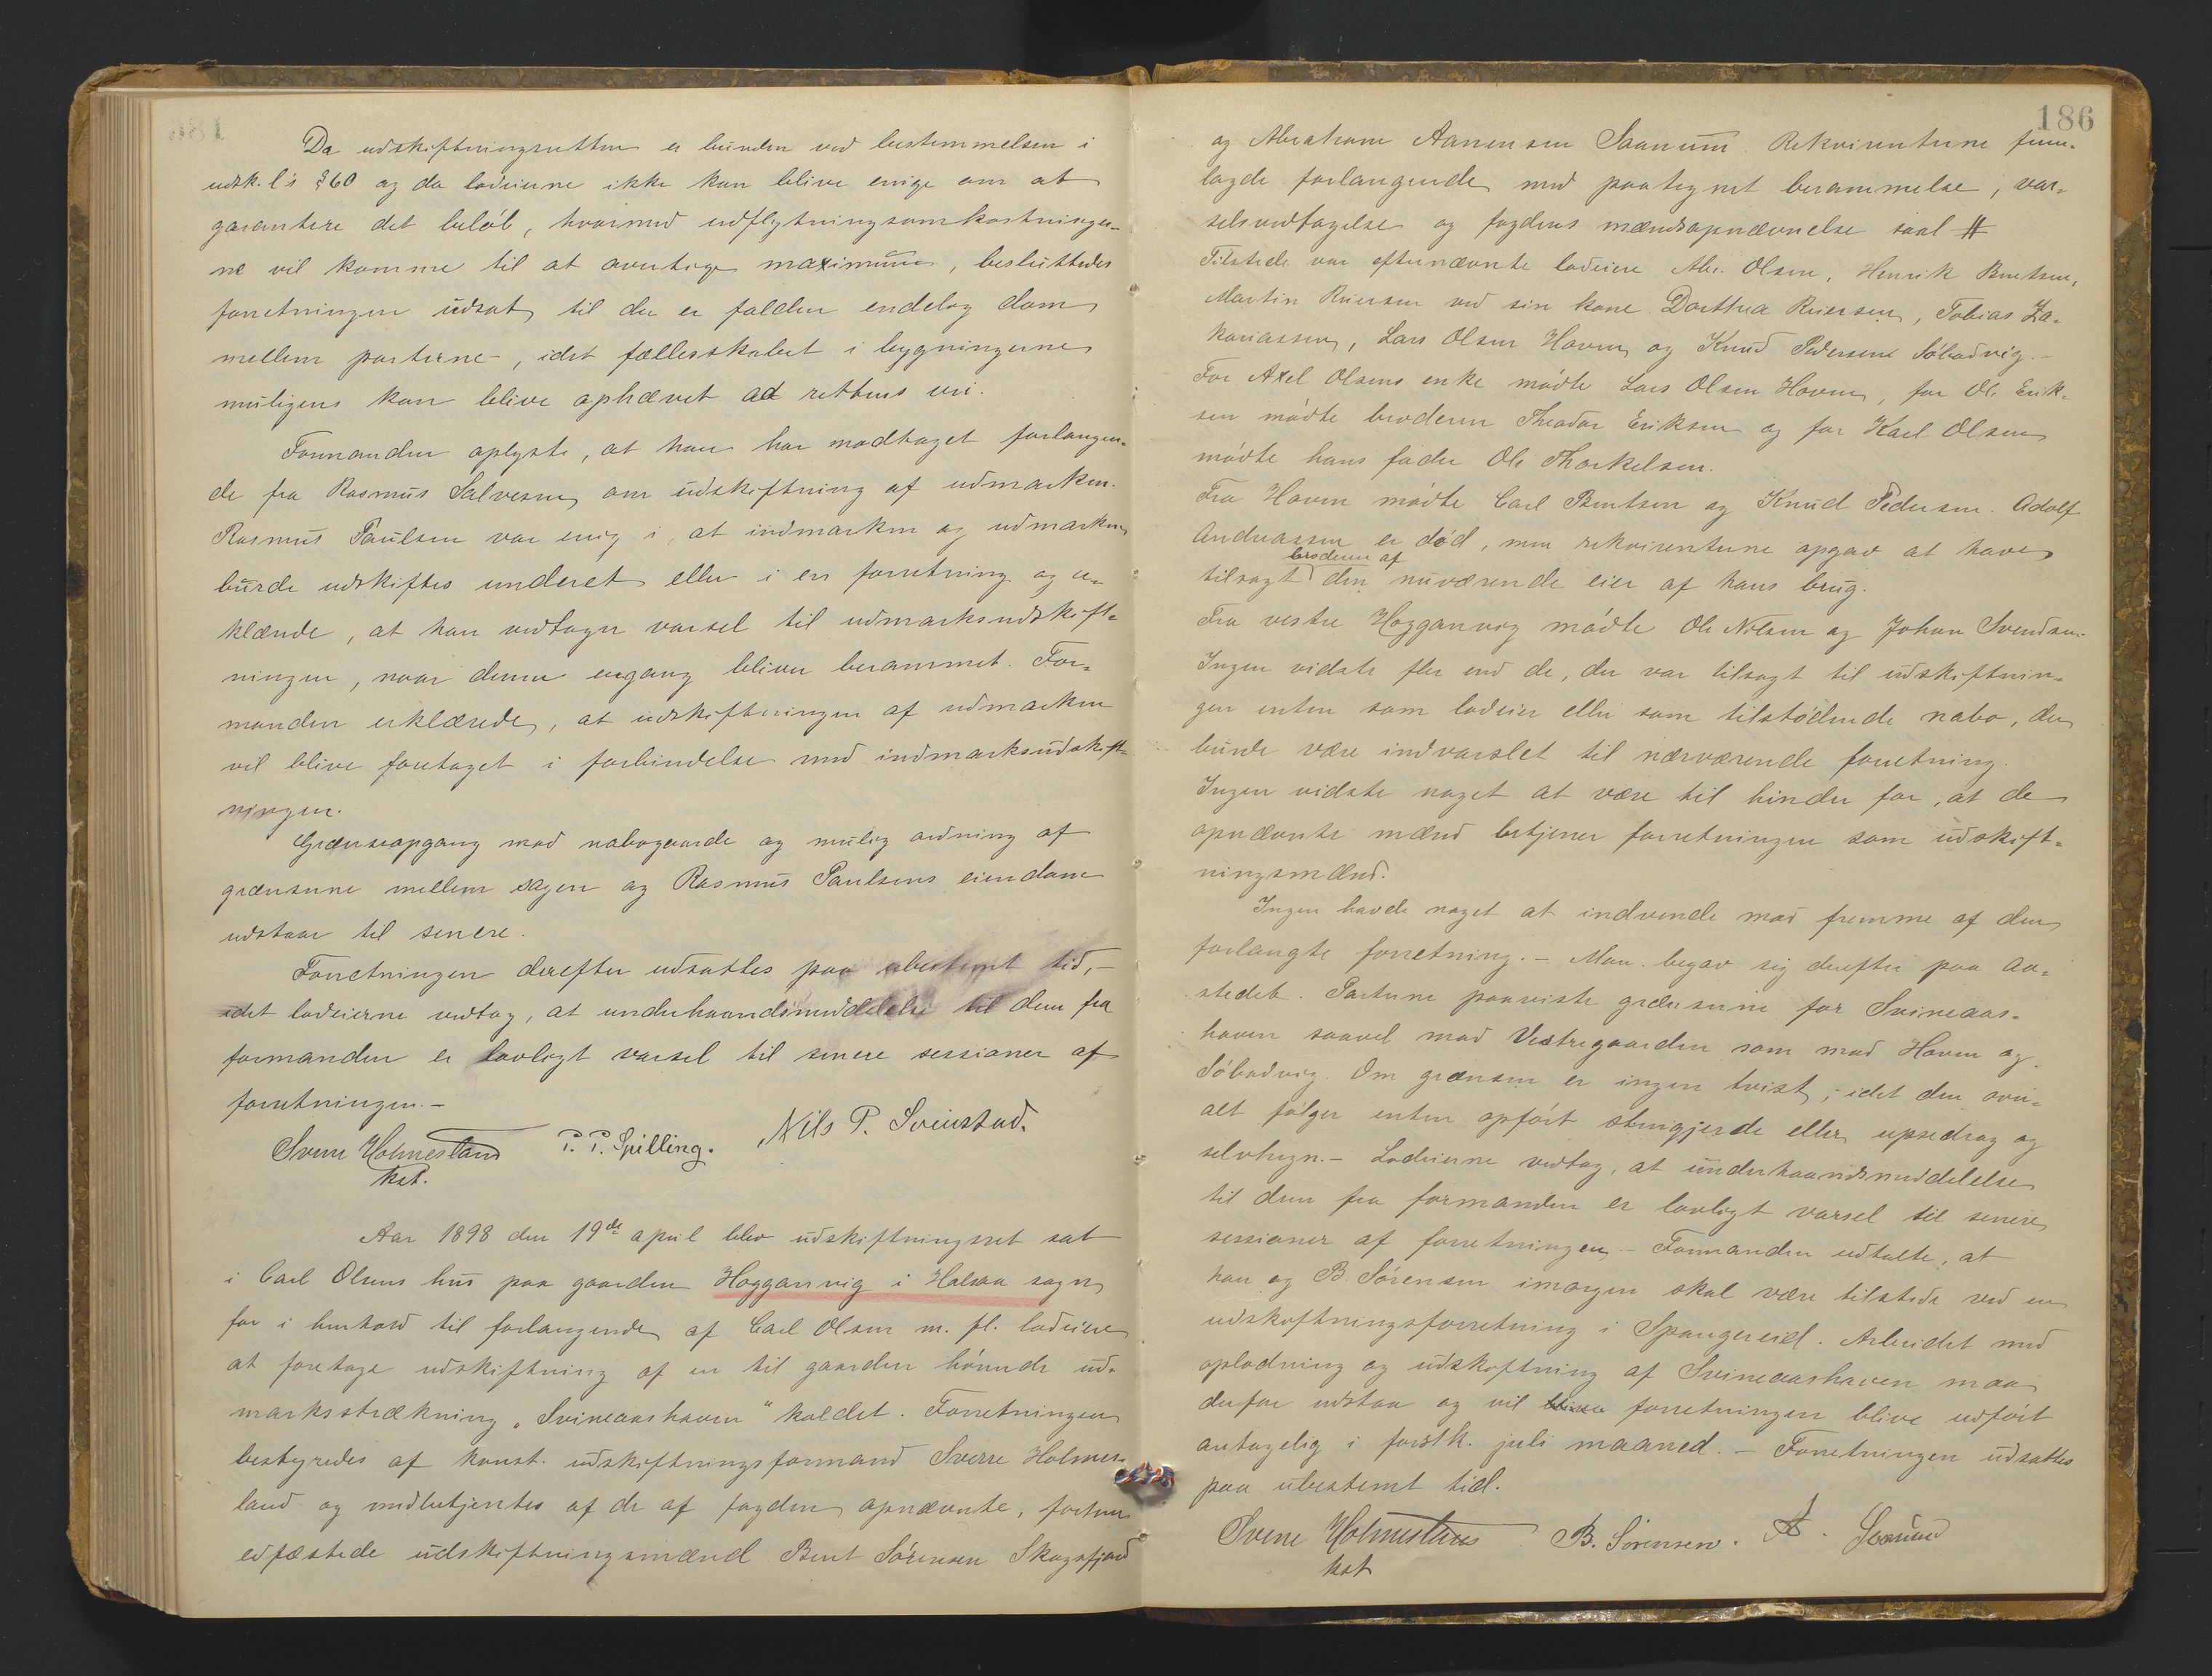 Da udskiftningsretten er bunden ved bestemmelsen i
udsk.l's § 60 og da lodeierne ikke kan blive enige om at
garantere det beløb, hvormed udflytningsomkostninger-
ne vil komme til at overstige maximum, besluttedes
forretningen udsat til der er falden endelig dom
mellem parterne -, idet fællesskabet i bygningerne
muligens kan blive ophævet ad rettens vei.
Formanden oplyste, at han har modtaget forlangen-
de fra Rasmus Salvesen om udskiftning af udmarken.
Rasmus Paulsen var enig i, at indmarken og udmarken
burde udskiftes underet eller i en forretning og er-
klærede, at han vedtager varsel til udmarksudskift-
ningen, naar denne engang bliver berammet. For-
manden erklærede, at udskiftningen af udmarken
vil blive foretaget i forbindelse med indmarksudskift-
ningen.
Grænseopgang mod nabogaarde og mulig ordning af
grænserne mellem sagen og Rasmus Paulsens eiendom
udstaar til senere.
Forretningen derefter udsattes paa ubestemt tid, -
idet lodeierne vedtog, at underhaandsmeddelelse til dem fra
formanden er lovligt varsel til senere sessioner af
forretningen. -
Sverre Holmesland P. P. Spilling. Nils P. Sveinstad.
kst.
Aar 1898 den 19de april blev udskiftningsret sat
i Carl Olsens hus paa gaarden Hogganvig i Halsaa sogn
for i henhold til forlangende af Carl Olsen m. fl. lodeiere
at foretage udskiftning af en til gaarden hørende ud-
marksstrækning "Svineaashaven" kaldet. Forretningen
bestyredes af konst. udskiftningsformand Sverre Holmes-
land og medbetjentes af de af fogden opnævnte, forhen
edfæstede udskiftningsmænd Bent Sørensen Skogsfjord
186
og Abraham Aanensen Saanum. Rekvirenterne frem-
lagde forlangende med paategnet berammelse, var-
selsvedtagelse og fogdens mændsopnævnelse saal #
Tilstede var efternævnte lodeiere Abr. Olsen, Henrik Bentsen,
Martin Reiersen ved sin kone Dorthea Reiersen, Tobias Za-
kariassen, Lars Olsen Haven og Knud Pedersen Søbodvig. -
For Axel Olsens enke mødte Lars Olsen Haven, for Ole Erik-
sen mødte broderen Theodor Eriksen og for Karl Olsen
mødte hans fader Ole Thorkelsen.
Fra Haven mødte Carl Bentsen og Knud Pedersen. Adolf
Andreassen er død, men rekvirenterne opgav at have
broderen af
tilsagt den nuværende eier af hans brug.
Fra vestre Hogganvig mødte Ole Nilsen og Johan Svendsen.
Ingen vidste fler end de, der var tilsagt til udskiftnin-
gen enten som lodeier eller som tilstødende nabo, der
burde være indvarslet til nærværende forretning.
Ingen vidste noget at være til hinder for, at de
opnævnte mænd betjener forretningen som udskift-
ningsmænd.
Ingen havde noget at indvende mod fremme af den
forlangte forretning. - Man begav sig derefter paa aa-
stedet. Parterne paaviste grænserne for Svineaas-
haven saavel mod Vestregaarden som mod Haven og
Søbodvig. Om grænsen er ingen tvist, - idet den over-
alt følger enten opført stengjerde eller opsedrag og
selvhegn. - Lodeierne vedtog, at underhaandsmeddelelse
til dem fra formanden er lovligt varsel til senere
sessioner af forretningen. - Formanden udtalte, at
han og B. Sørensen imorgen skal være tilstede ved en
udskiftningsforretning i Spangereid. Arbeidet med
oplodning og udskiftning af Svineaashaven maa
derfor udstaa og vil forretningen blive udført
antagelig i førstk. juli maaned. - Forretningen udsattes
paa ubestemt tid.
Sverre Holmesland B. Sørensen. A. Saanum
kst